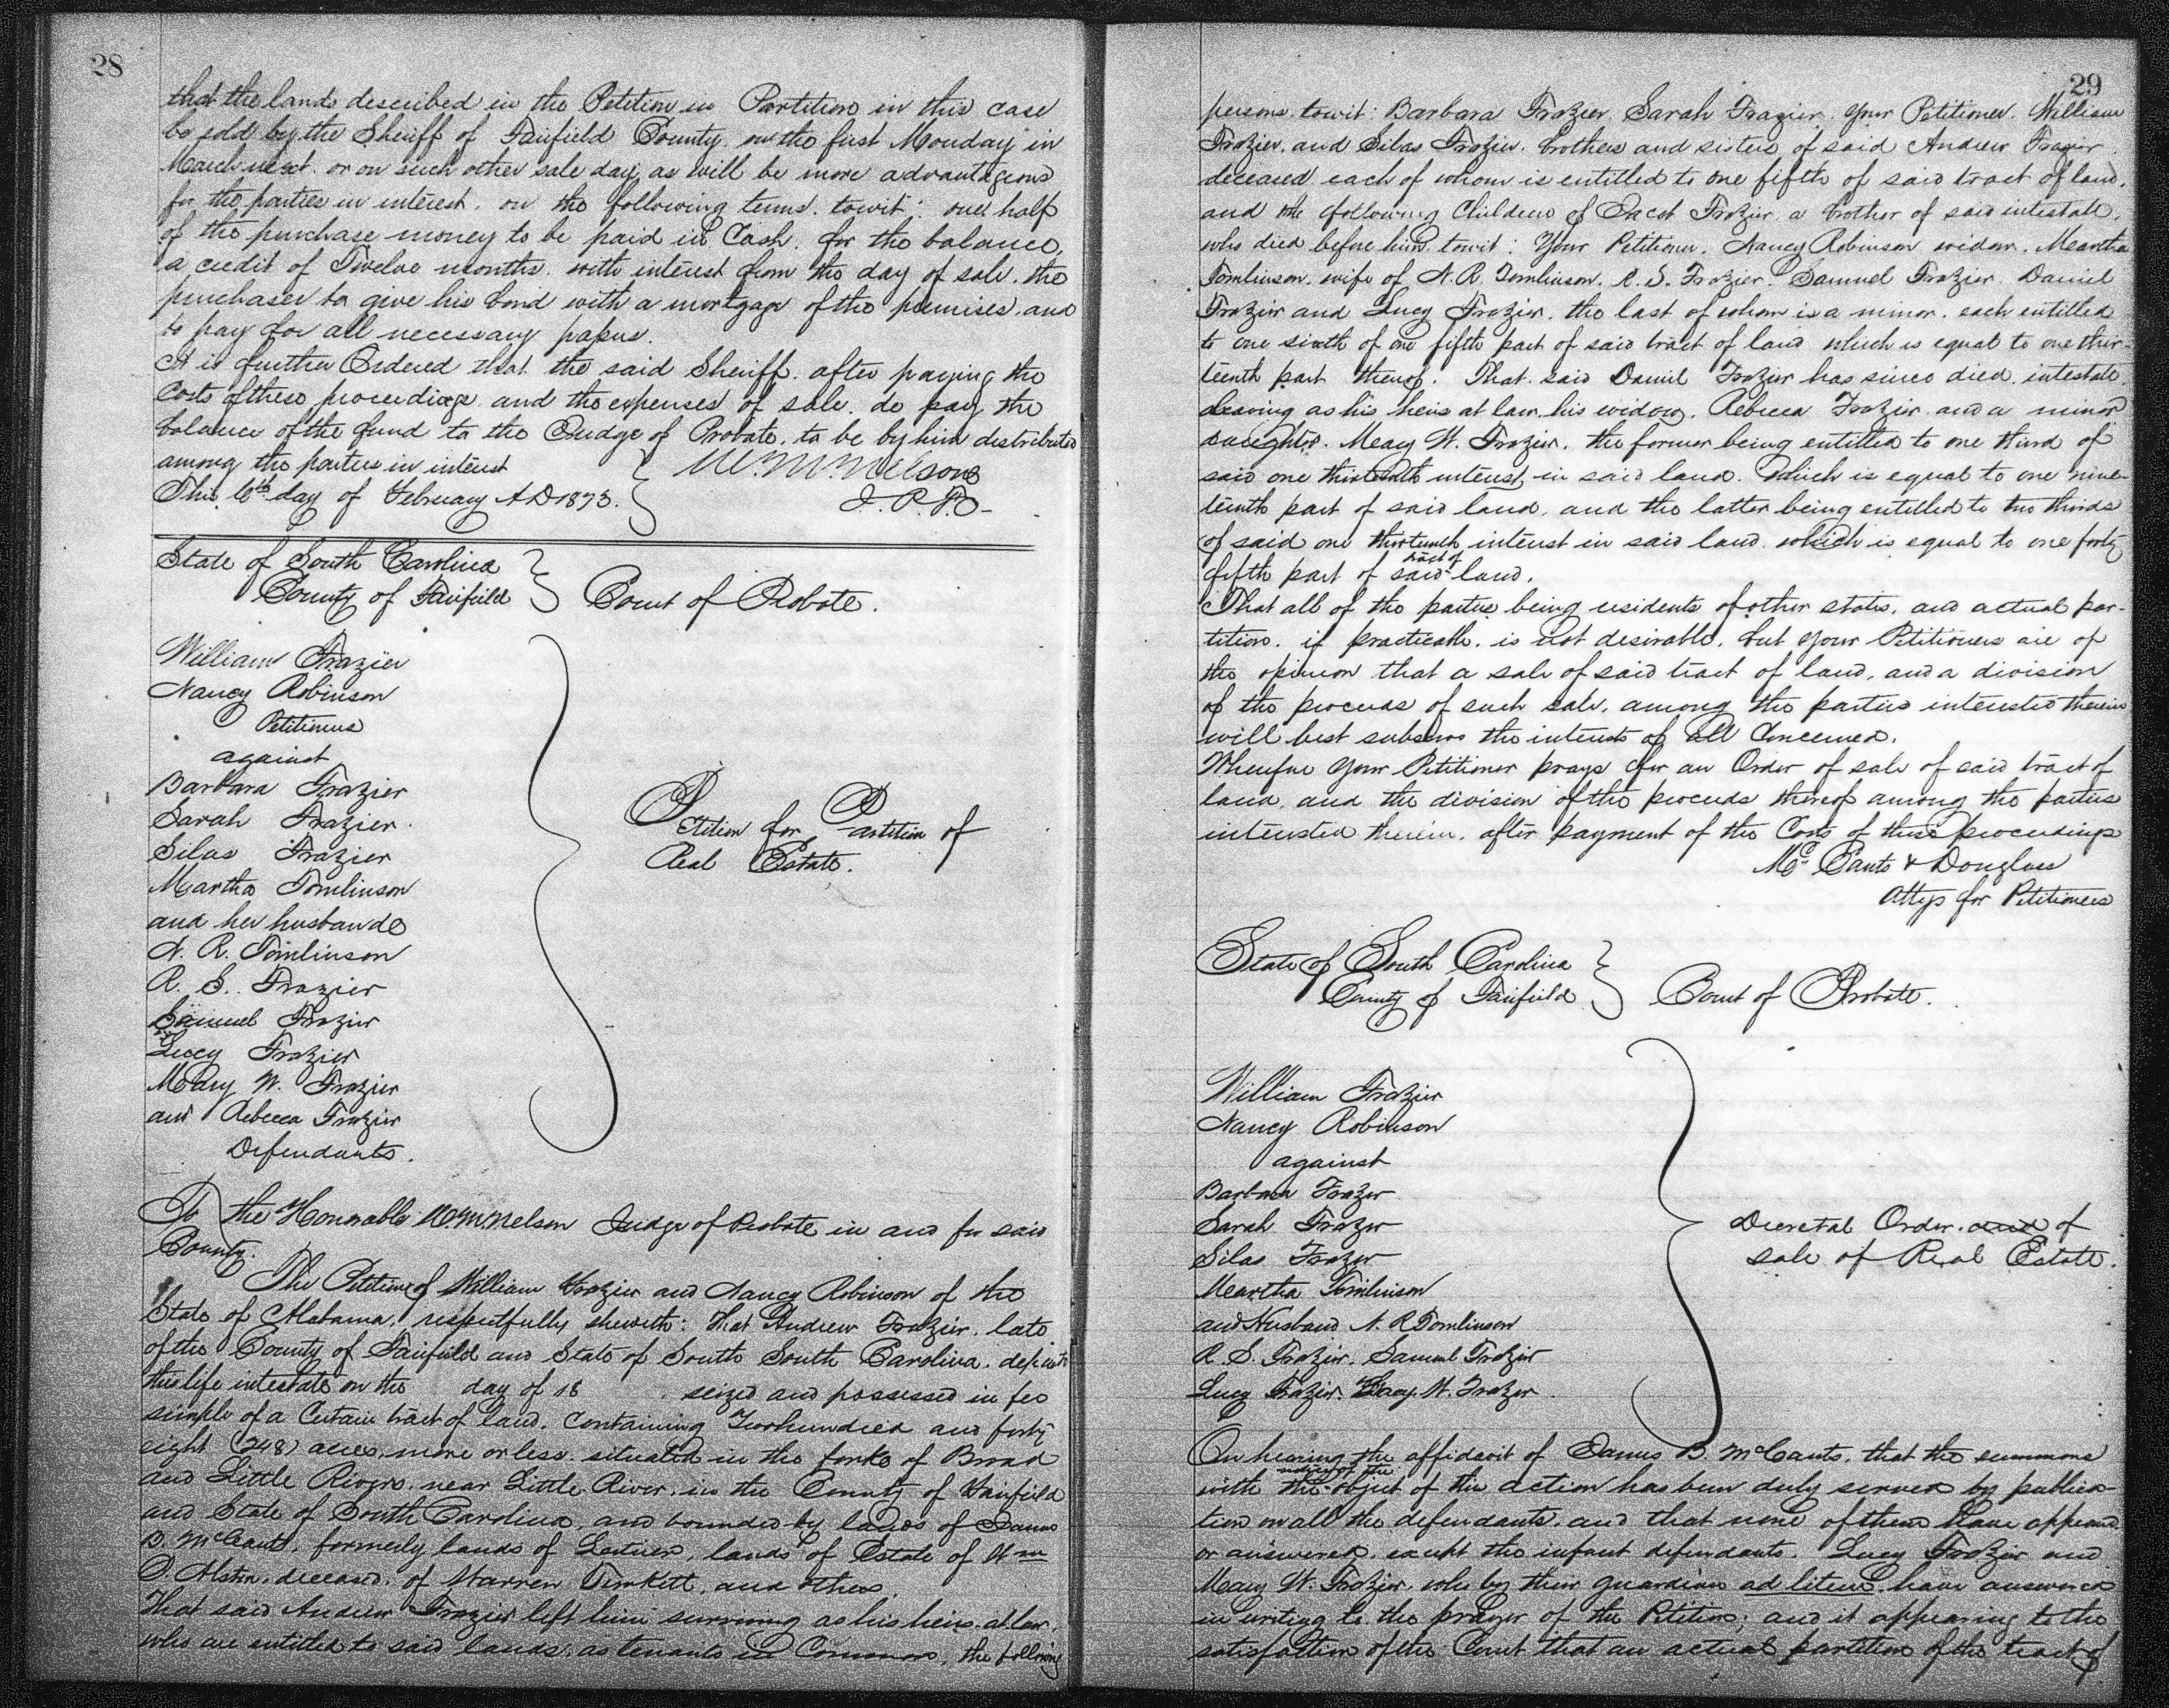 28
that the lands described in the Petition in Partition in this case
be sold by the Sheriff of Fairfield County on the first Monday in
March next. or on such other sale day, as will be more advantageous
for the parties in interest. on the following terms. towit: one half
of the purchase money to be paid in Cash. for the balance
a credit of Twelve months. with interest from the day of sale. the
purchaser to give his bond with a mortgage of the premises. and
to pay for all necessary papers.
It is further Ordered that the said Sheriff. after paying the
Costs of these proceedings and the expenses of sale. do pay the
balance of the fund to the Judge of Probate. to be by him distributed
among the parties in interest
This 6th day of February AD 1873.
Wm Nelson
J. P. F. C.
State of South Carolina
County of Fairfield
Court of Probate.
William Frazier
Nancy Robinson
Petitioners
against
Barbara Frazier
Sarah Frazier.
Silas Frazier
Martha Tomlinson
and her husband
N. R. Tomlinson
R. S. Frazier
Samuel Frazier
Lucy Frazier
Mary W. Frazier
and Rebecca Frazier
Defendants.
Petition for Partition of
Real Estate.
To the Honorable Wm Nelson Judge of Probate in and for said
County.
The Petition of William Frazier and Nancy Robinson of the
State of Alabama, respectfully sheweth: that Andrew Frazier. late
of the County of Fairfield and State of South South Carolina. departed
this life intestate on the day of 18 . seized and possessed in fee
simple of a Certain tract of land. Containing Two hundred and forty
eight (248) acres, more or less. situated in the forks of Broad
and Little Rivers. near Little River. in the County of Fairfield
and State of South Carolina, and bounded by lands of James
B. McCants, formerly lands of Leitner, lands of Estate of Wm
D. Alston. deceased. of Warren Turkett, and others.
That said Andrew Frazier left him surviving as his heirs at law.
who are entitled to said lands. as tenants in Common, the following
29
persons. towit: Barbara Frazier. Sarah Frazier. your Petitioner. William
Frazier. and Silas Frazier. brothers and sisters of said Andrew Frazier.
deceased each of whom is entitled to one fifth of said tract of land,
and the following Children of Jacob Frazier. a brother of said intestate.
who died before him. towit: Your Petitioner. Nancy Robinson widow. Martha
Tomlinson. wife of N. R. Tomlinson. R. S. Frazier. Samuel Frazier. Daniel
Frazier and Lucy Frazier. the last of whom is a minor. each entitled
to one sixth of one fifth part of said tract of land which is equal to one thir-
teenth part thereof. That said Daniel Frazier has since died. intestate.
leaving as his heirs at law. his widow. Rebecca Frazier and a minor
daughter. Mary W. Frazier. the former being entitled to one third of
said one thirteenth interest, in said land. which is equal to one nine-
teenth part of said land, and the latter being entitled to two thirds
of said one thirteenth interest in said land. which is equal to one forty
fifth part of said tract of land.
That all of the parties being residents of other states. and actual par-
tition. if practicable. is not desirable. but your Petitioners are of
the opinion that a sale of said tract of land, and a division
of the proceeds of such sale. among the parties interested therein
will best subserve the interests of all Concerned.
Wherefore your Petitioner prays for an Order of sale of said tract of
land. and the division of the proceeds thereof among the parties
interested therein. after payment of the Costs of these proceedings
McCants & Douglass
Attys for Petitioners
State of South Carolina
County of Fairfield
Court of Probate.
William Frazier
Nancy Robinson
against
Barbara Frazier
Sarah Frazier
Silas Frazier
Martha Tomlinson
and Husband N. R Tomlinson
R. S. Frazier. Samuel Frazier
Lucy Frazier. Mary. W. Frazier.
Decretal Order. and of
sale of Real Estate.
On hearing the affidavit of James B. McCants, that the summons
with notice of the object of the action has been duly served by publica-
tion on all the defendants. and that none of them have appeared
or answered. except the infant defendants. Lucy Frazier and
Mary W. Frazier. who by their guardian ad litem. have answered
in writing to the prayer of the Petition; and it appearing to the
satisfaction of the Court that an actual partition of the tract of